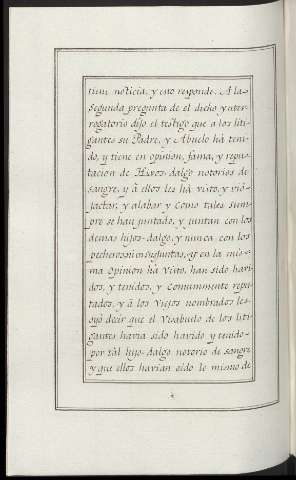 tiene noticia, y esto responde. A la=
segunda pregunta de el dicho ynter=
rogatorio dijo el testigo que a los liti=
gantes su Padre, y Abuelo hà teni=
do, y tiene en opinion, fama, y repu=
tacion de Hijos=dalgo notorios de
sangre, y à ellos les hà visto, y vió
jactar, y alabar y como tales siem=
pre se han juntado, y juntan con los
demas hijos=dalgo, y nunca con los
pecheros ni sus juntas, y en la mis=
ma opinion hà visto, han sido havi=
dos, y tenidos, y comunmente repu=
tados, y à los Viejos nombrados les=
oyò decir que el Visabuelo de los liti=
gantes havia sido havido y tenido=
por tál hijo=dalgo notorio de sangre
y que ellos havian oido lo mismo de